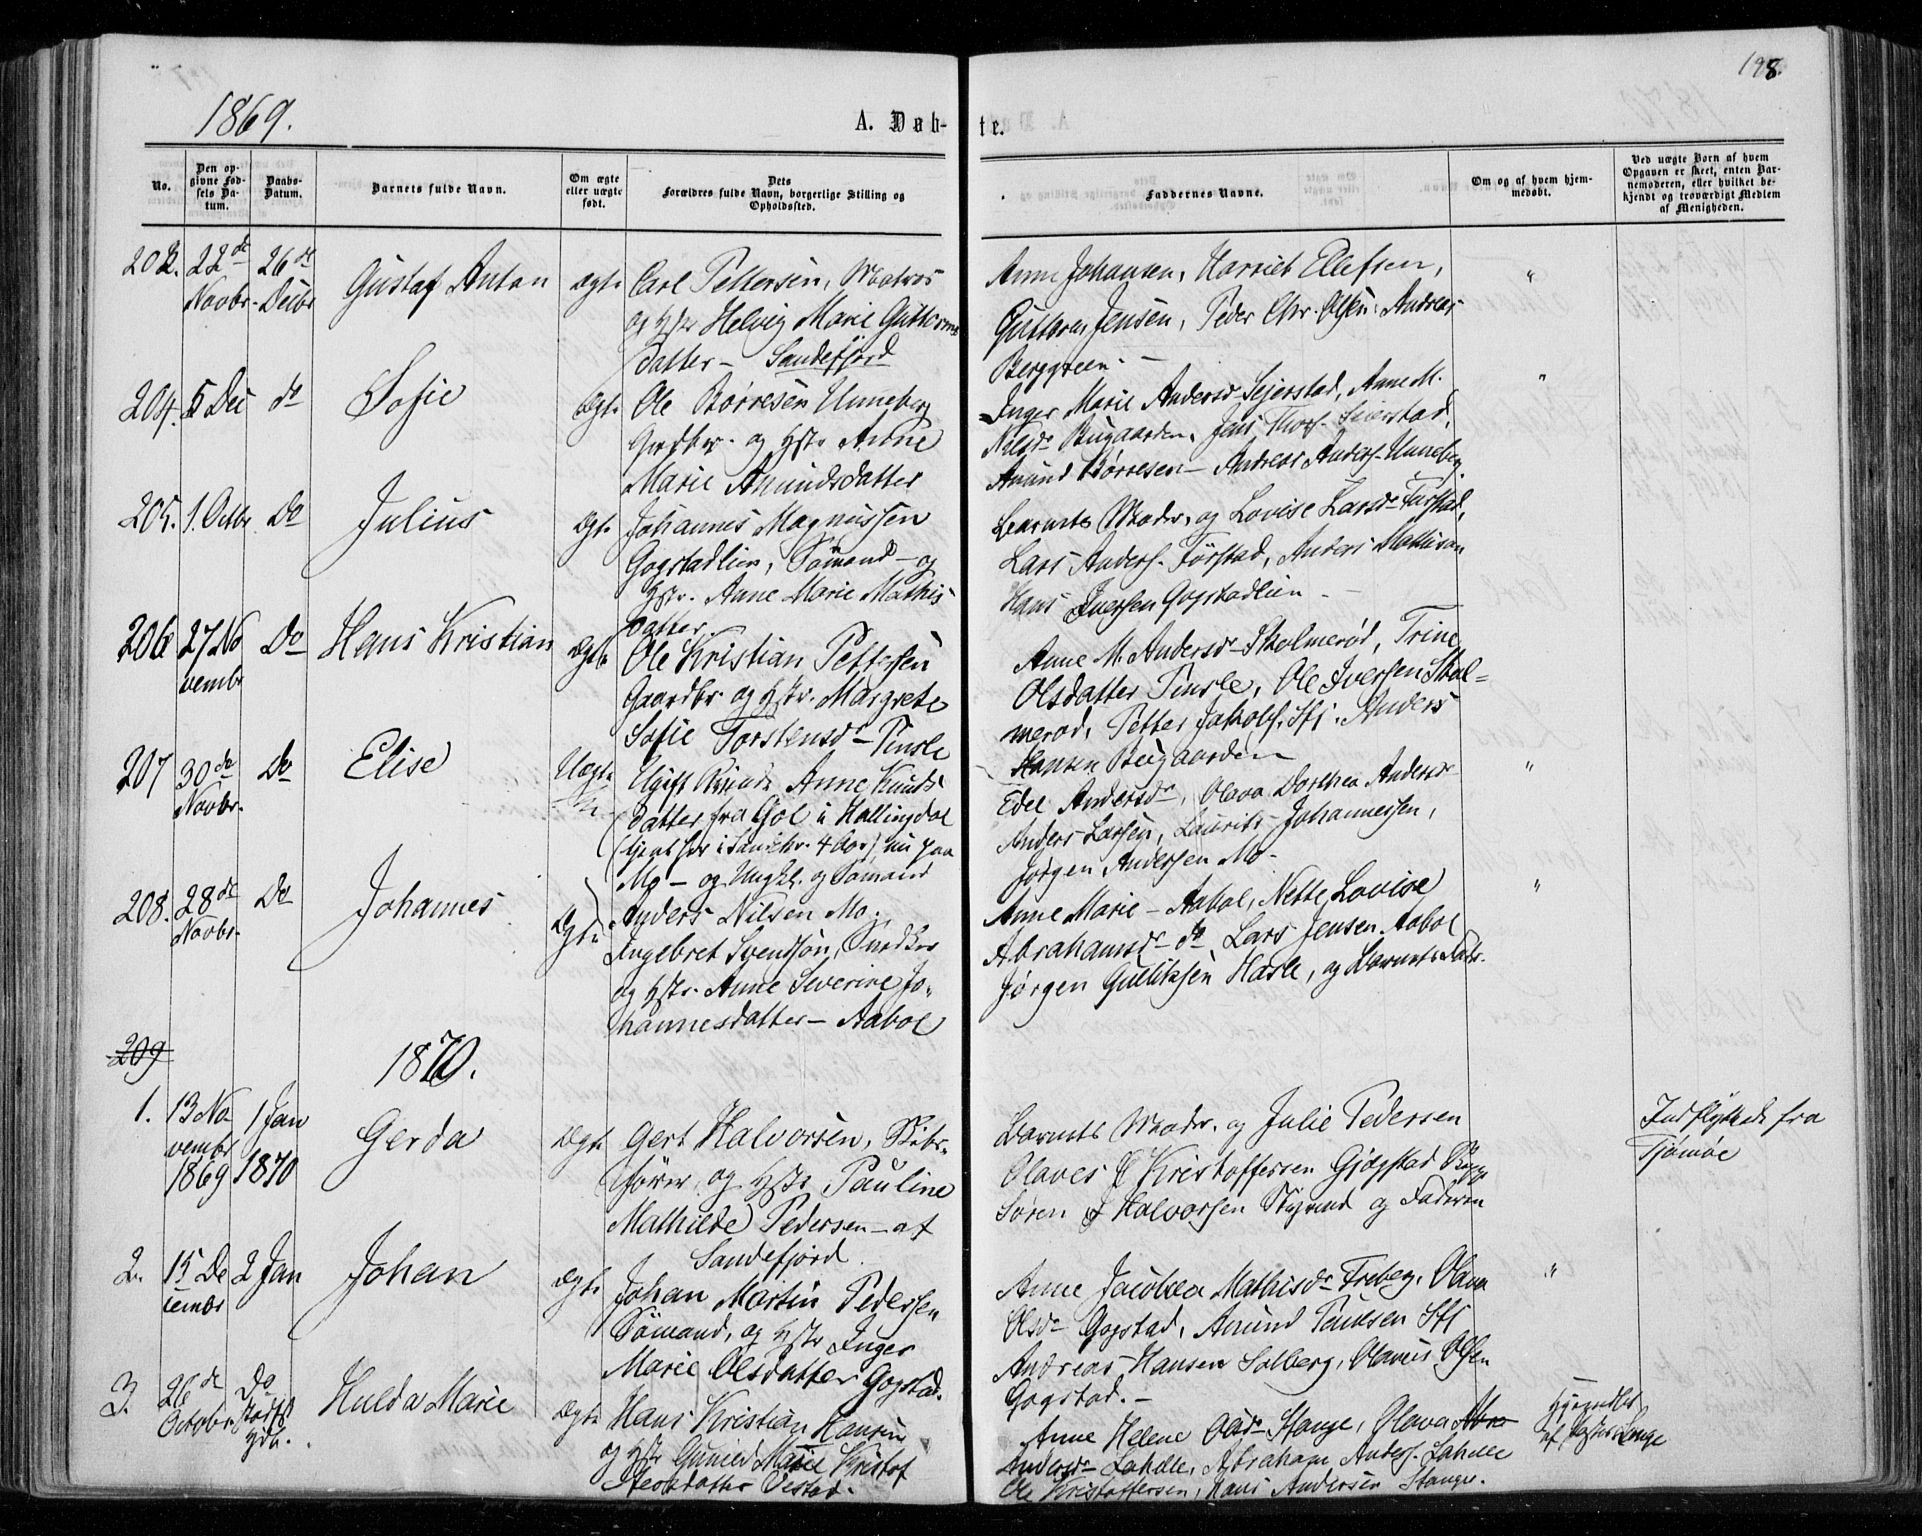 198.
1869.
A. Døb-
te.
No.
Den op-
givne Fød-
sels Da-
tum.
Daabs-
Datum.
Barnets fulde Navn.
Om ægte
eller uægte
født.
Dets
Forældres fulde Navn, borgerlige Stilling og
Opholdssted.
Faddernes Navne.
Om og af hvem hjem-
medøbt.
Ved uægte Børn af hvem
Opgaven er skeet, enten Bar-
nemoderen, eller hvilket be-
kjendt og troværdigt Medlem
af Menigheden.
203. 22de Novbr. 26de Decbr Gustaf Anton ægte
Carl Pettersen, Matros
og Hstr Helvig Marie Guttorms
datter - Sandefjord
Anne Johansen, Harriet Ellefsen,
Guttorm Jensen, Peder Chr. Olsen, Andreas
Berggreen. -
"
204. 5 Dec do Sofie Ægte
Ole Børresen Unneberg
Grdbr. og Hstr Anne
Marie Amundsdatter
Inger Marie Andersdr Sejerstad, Anne M.
Nilsdr Bugaarden, Jens Thors. Seierstad,
Amund Børresen - Andreas Anders. Unneberg
"
205. 1. Octbr Do Julius Ægte
Johannes Magnussen
Gogstadlien, Sømand - og
Hstr. Anne Marie Mathis-
datter
Barnets Moder, og Lovise Larsdr Førstad,
Lars Anders. Førstad, Anders Mathisen
Hans Iversen Gogstadlien -
206 27 No
vembr Do Hans Kristian Ægte
Ole Kristian Pettersen
Gaardbr. og Hstr. Margrete
Sofie Torstensdr
Anne M. Andersdr Skolmerød, Trine
Olsdatter, Ole Iversen Skol=
merød, Petter Jakobs. Sts. Anders
Hansen Bugaarden
207 30de Novbr. Do Elise Uægte
Ugift Anne Knuds
datter fra Gol i Hallingdal
(tjent her i 4 Aar) nu paa
Mo - og Ungkl. og Sømand
Anders Nilsen Mo.
Edel Andersdr, Olava Dorthea Andersdr
Anders Larsen, Laurits Johannessen,
Jørgen Andersen Mo -
"
208. 28de Novbr. Do Johannes Ægte
Ingebret Svendsøn, Snedker
og Hstr. Anne Severine Jo-
hannesdatter - Aabol
Anne Marie - Aabol, Nette Lovise
Abrahamsdr do Lars Jensen Aabol
Jørgen Gulliksen Hasle, og Barnets Fader.
"
209
1870.
1. 13 No
vembr
1869 1 Jan
1870 Gerda Ægte
Gert Halvorsen, Skibs-
fører, og Hstr Pauline
Mathilde Pedersen - af
Sandefjord.
Barnets Moder. og Julie Pedersen
Olaves E Kristoffersen Gjøgstad
Søren J Halvorsen Styrmd og Faderen
Indflyttede fra
Tjømøe
2. 15 De
cember 2 Jan Johan Ægte
Johan Martin Pedersen
Sømand, og Hstr Inger
Marie Olsdatter Gogstad.
Anne Jacobea Mathisdr Freberg, Olava
Olsdr Gogstad, Amund Paulsen Sts
Andreas Hansen Solberg, Olavus Olsen
Gogstad. -
"
3. 26de
Octobr Do Hulda Marie Ægte
Hans Kristian Hansen
og Hstr Gunild Marie Kristof
fersdatter
Anne Helene Stange, Olava
Andersdr Lahelle, Abraham Anders. Lahelle
Ole Kristoffersen, Hans Andersen Stange.
Hjemdøbt
af Pastor Lange